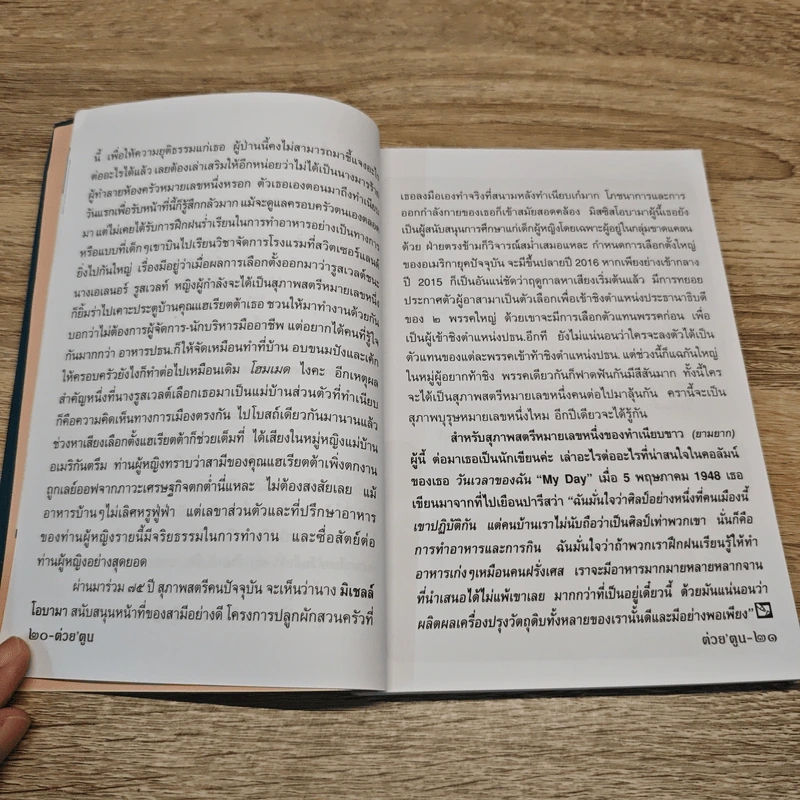 นี้ เพื่อให้ความยุติธรรมแก่เธอ ผู้ป่านนี้คงไม่สามารถมาชี้แจงอะไร
ต่ออะไรได้แล้ว เลยต้องเล่าเสริมให้อีกหน่อยว่าไม่ได้เป็นนางมารร้าย
ผู้ทำลายห้องครัวหมายเลขหนึ่งหรอก ตัวเธอเองตอนมาถึงทำเนียบ
วันแรกเพื่อรับหน้าที่นี้ก็รู้สึกกลัวมาก แม้จะดูแลครอบครัวตนเองตลอด
มา แต่ไม่เคยได้รับการฝึกฝนร่ำเรียนในการทำอาหารอย่างเป็นทางการ
หรือแบบที่เด็กๆเขาบินไปเรียนวิชาจัดการโรงแรมที่สวิตเซอร์แลนด์
ยิ่งไปกันใหญ่ เรื่องมีอยู่ว่าเมื่อผลการเลือกตั้งออกมาว่ารูสเวลต์ชนะ
นางเอเลนอร์ รูสเวลท์ หญิงผู้กำลังจะได้เป็นสุภาพสตรีหมายเลขหนึ่ง
ก็ยิ้มร่าไปเคาะประตูบ้านคุณแฮเรียตต้าเธอ ชวนให้มาทำงานด้วยกัน
บอกว่าไม่ต้องการผู้จัดการ-นักบริหารมืออาชีพ แต่อยากได้คนที่รู้ใจ
กันมากกว่า อาหารปธน.ก็ให้จัดเหมือนทำที่บ้าน อบขนมปังและเค้ก
ให้ครอบครัวยังไงก็ทำต่อไปเหมือนเดิม โฮมเมด ไงคะ อีกเหตุผล
สำคัญหนึ่งที่นางรูสเวลต์เลือกเธอมาเป็นแม่บ้านส่วนตัวที่ทำเนียบ
ก็คือความคิดเห็นทางการเมืองตรงกัน ไปโบสถ์เดียวกันมานานแล้ว
ช่วงหาเสียงเลือกตั้งแฮเรียตต้าก็ช่วยเต็มที่ ได้เสียงในหมู่หญิงแม่บ้าน
อเมริกันตรึม ท่านผู้หญิงทราบว่าสามีของคุณแฮเรียตต้าเพิ่งตกงาน
ถูกเลย์ออฟจากภาวะเศรษฐกิจตกต่ำนี่แหละ ไม่ต้องสงสัยเลย แม้
อาหารบ้านๆไม่เลิศหรูฟู่ฟ่า แต่เลขาส่วนตัวและที่ปรึกษาอาหาร
ของท่านผู้หญิงรายนี้มีจริยธรรมในการทำงาน และซื่อสัตย์ต่อ
ท่านผู้หญิงอย่างสุดยอด
ผ่านมาร่วม ๗๕ ปี สุภาพสตรีคนปัจจุบัน จะเห็นว่านาง มิเชลล์
โอบามา สนับสนุนหน้าที่ของสามีอย่างดี โครงการปลูกผักสวนครัวที่
๒๐-ต่วย'ตูน
เธอลงมือเองทำจริงที่สนามหลังทำเนียบเก๋มาก โภชนาการและการ
ออกกำลังกายของเธอก็เข้าสมัยสอดคล้อง มิสซิสโอบามาผู้นี้เธอยัง
เป็นผู้สนับสนุนการศึกษาแก่เด็กผู้หญิงโดยเฉพาะผู้อยู่ในกลุ่มขาดแคลน
ด้วย ฝ่ายตรงข้ามก็วิจารณ์สม่ำเสมอแหละ กำหนดการเลือกตั้งใหญ่
ของอเมริกายุคปัจจุบัน จะมีขึ้นปลายปี 2016 หากเพียงย่างเข้ากลาง
ปี 2015 ก็เป็นอันแน่ชัดว่าฤดูกาลหาเสียงเริ่มต้นแล้ว มีการทยอย
ประกาศตัวผู้อาสามาเป็นตัวเลือกเพื่อเข้าชิงตำแหน่งประธานาธิบดี
ของ ๒ พรรคใหญ่ ด้วยเขาจะมีการเลือกตัวแทนพรรคก่อน เพื่อ
เป็นผู้เข้าชิงตำแหน่งปธน.อีกที ยังไม่แน่นอนว่าใครจะลงตัวได้เป็น
ตัวแทนของแต่ละพรรคเข้าท้าชิงตำแหน่งปธน. แต่ช่วงนี้ก็แฉกันใหญ่
ในหมู่ผู้อยากท้าชิง พรรคเดียวกันก็ฟาดฟันกันมีสีสันมาก ทั้งนี้ใคร
จะได้เป็นสุภาพสตรีหมายเลขหนึ่งคนต่อไปมาลุ้นกัน ครานี้จะเป็น
สุภาพบุรุษหมายเลขหนึ่งไหม อีกปีเดียวจะได้รู้กัน
สำหรับสุภาพสตรีหมายเลขหนึ่งของทำเนียบขาว (ยามยาก)
ผู้นี้ ต่อมาเธอเป็นนักเขียนค่ะ เล่าอะไรต่ออะไรที่น่าสนใจในคอลัมน์
ของเธอ วันเวลาของฉัน "My Day" เมื่อ 5 พฤษภาคม 1948 เธอ
เขียนมาจากที่ไปเยือนปารีสว่า "ฉันมั่นใจว่าศิลป์อย่างหนึ่งที่คนเมืองนี้
เขาปฏิบัติกัน แต่คนบ้านเราไม่นับถือว่าเป็นศิลป์เท่าพวกเขา นั่นก็คือ
การทำอาหารและการกิน ฉันมั่นใจว่าถ้าพวกเราฝึกฝนเรียนรู้ให้ทำ
อาหารเก่งๆเหมือนคนฝรั่งเศส เราจะมีอาหารมากมายหลายหลากจาน
ที่นำเสนอได้ไม่แพ้เขาเลย มากกว่าที่เป็นอยู่เดี๋ยวนี้ ด้วยมันแน่นอนว่า
ผลิตผลเครื่องปรุงวัตถุดิบทั้งหลายของเรานั้นดีและมีอย่างพอเพียง"
ต่วย'ตูน-๒๑